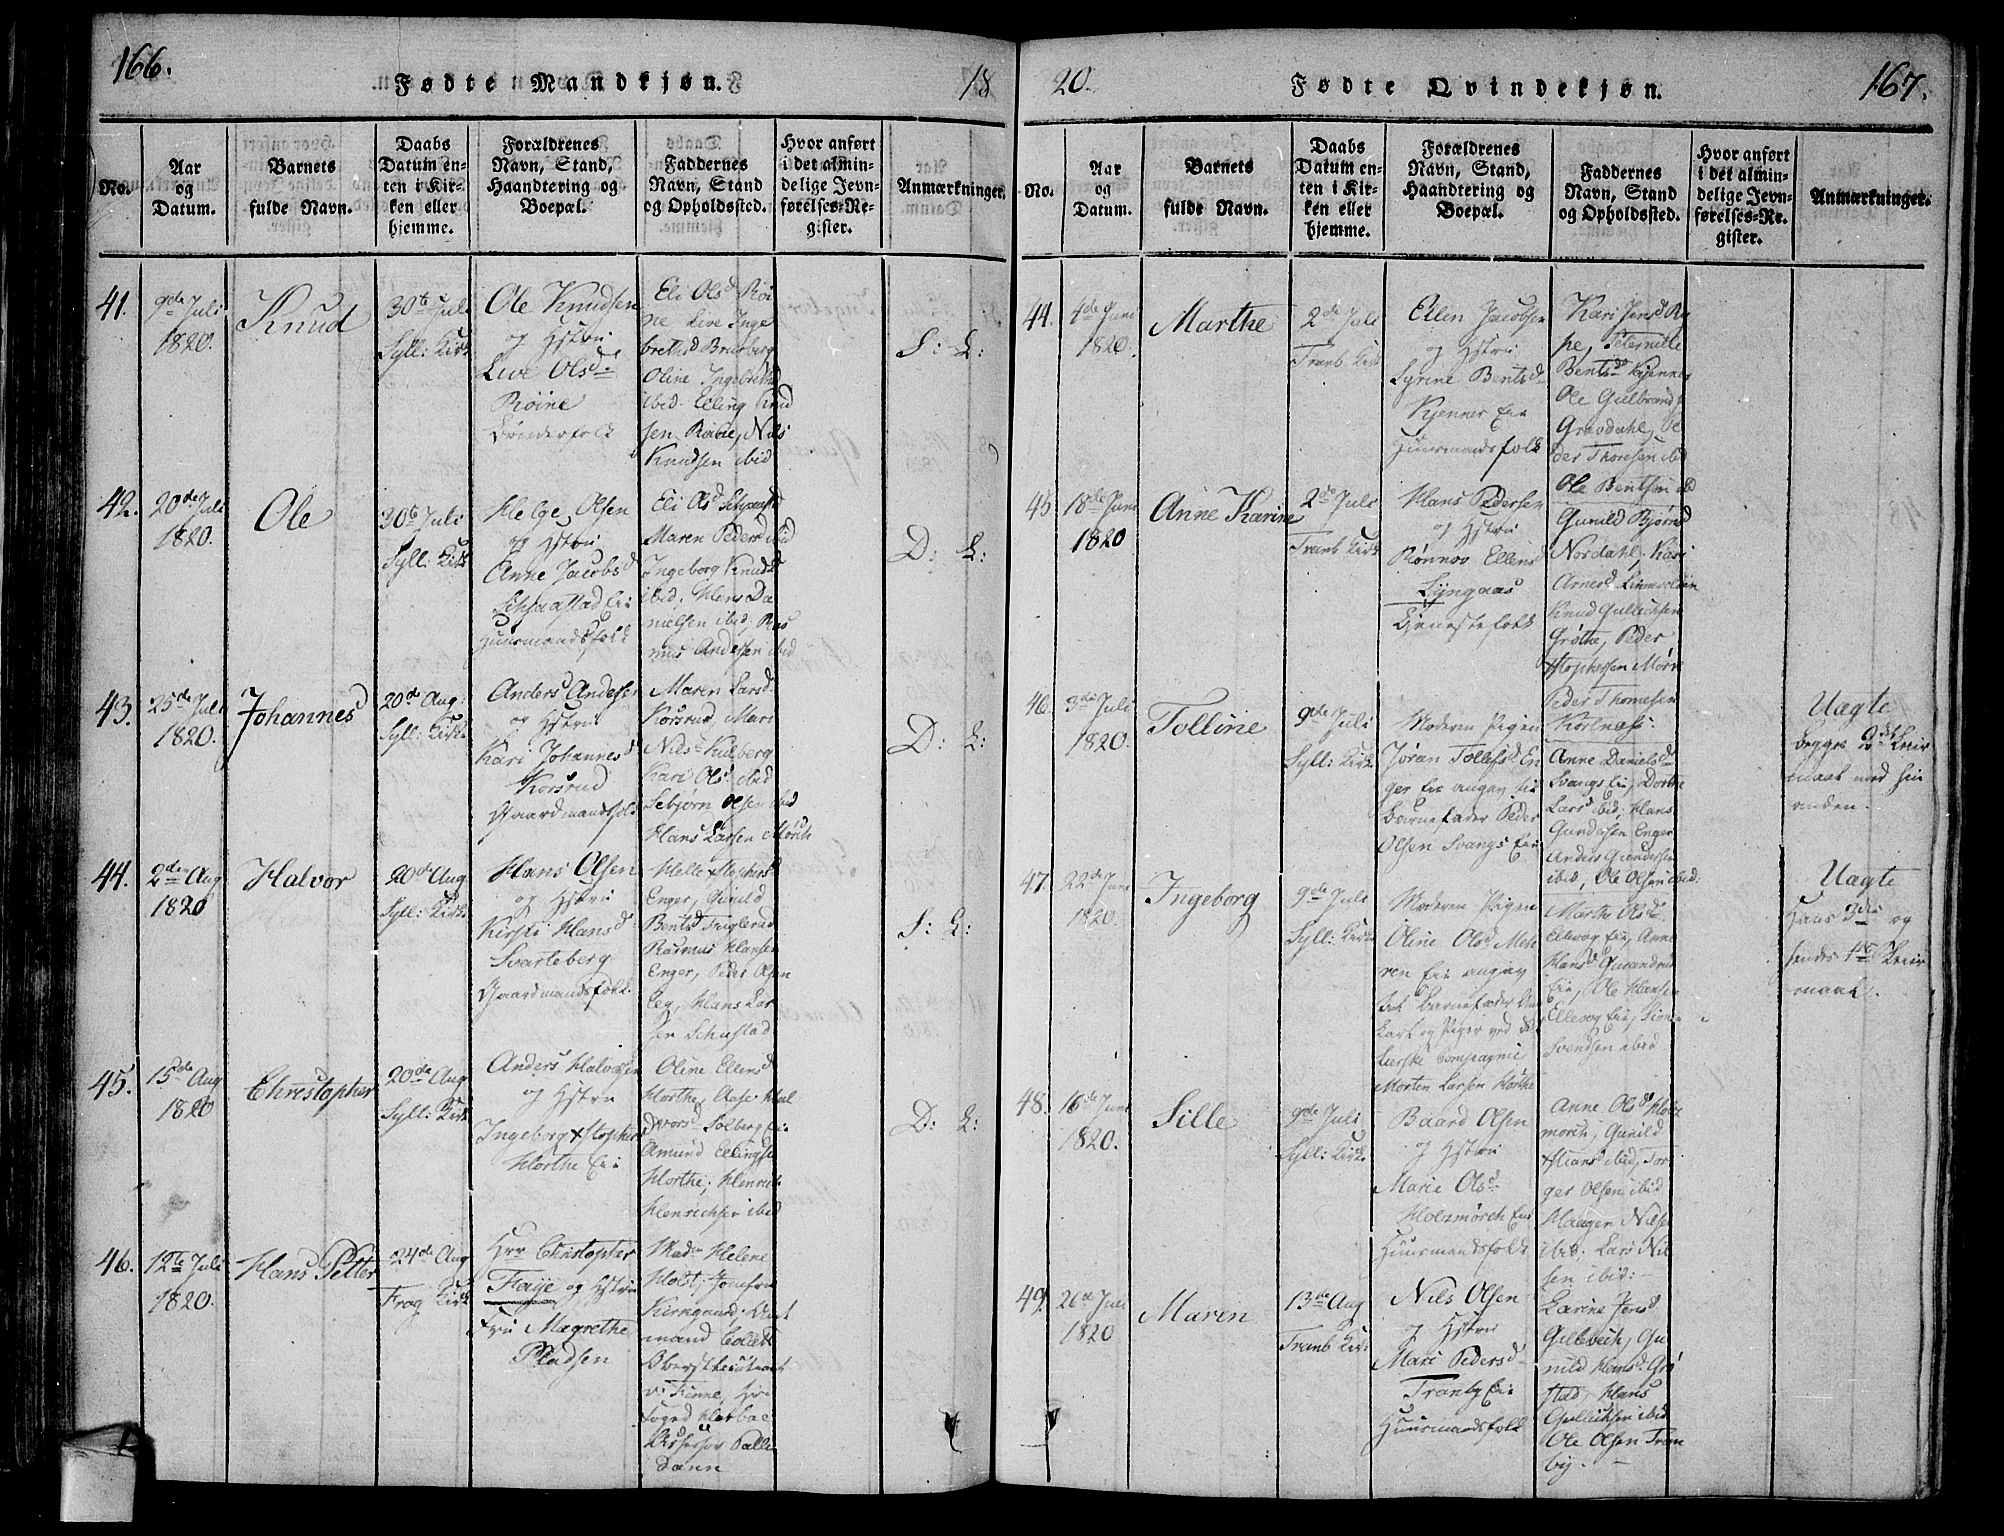 166.
Fødte Mandkjøn.
18
No.
Aar
og
Datum.
Barnets
fulde Navn.
Daabs
Datum en-
ten i Kir-
ken eller
hjemme.
Forældrenes
Navn, Stand,
Haandtering og
Boepæl.
Faddernes
Navn, Stand
og Opholdssted.
Hvor anført
i det almin-
delige Jevn-
førelses-Re-
gister.
Anmærkninger.
41.
9de Juli
1820.
Knud
30te Juli
Syll: Kirk
Ole Knudsen
og Hstru
Live Olsd
Röine
Bønderfolk
Eli Olsd Röi
ne Live Inge
brethsd Brusberg
Oline Ingebrethsd
ibid. Elling Knud
sen Rabie, Nils
Knudsen ibid
S: L:
42.
20de Juli
1820.
Ole
30te Juli
Syll: Kirk
Helge Olsen
og Hstru
Anne Jacobsd
Schjaastad Eie
Huusmandsfolk
Eli Olsd Schjaastad
Maren Pedersd ibid
Ingeborg Knudsd
ibid, Hans Da
nielsen ibid, Ras
mus Andersen ibid
D: L:
43.
25de Juli
1820.
Johannes
20de Aug:
Syll: Kirk
Anders Andersen
og Hstru
Kari Johannesd
Korsrud
Gaardmandsfolk
Maren Larsd
Korsrud Mari
Nilsd Kulberg
Kari Olsd ibid
Sebjørn Olsen ibid
Hans Larsen Mörch
D: L:
44.
2den Aug
1820
Halvor
20de Aug
Syll: Kirk
Hans Olsen
og Hstru
Kirsti Hansd
Svarteberg
Gaardmandsfolk
Helle Xstophersd
Enger, Gunild
Bentsd
Rasmus Hansen
Enger, Peder Olsen
Eeg, Hans Lar
sen Schiestad
S: L:
45.
15de Aug
1820
Christopher
20de Aug
Syll: Kirk
Anders Halvorsen
og Hstru
Ingeborg Xstopher
Horthe Eie
Oline Ellensd
Horthe, Aase Hal
dvorsd Solberg Eie
Amund Ellingsen
Horthe, Henrik
Henrichsen ibid
D: L:
46.
12te Juli
1820.
Hans Petter
24de Aug
Frog Kirk
Hrr Christopher
Faye og Hstru
Fru Magrethe
Pladsen
Mad. Helene
Holst, Jomfru
Kierrgaard, Amt
mand Collett
Oberstleutnant
v: Finne, Hr:
foged Horbae
Assessor Palle
Dann
20.
Fødte Qvindekjøn.
167.
No.
Aar
og
Datum.
Barnets
fulde Navn.
Daabs
Datum en-
ten i Kir-
ken eller
hjemme.
Forældrenes
Navn, Stand,
Haandtering og
Boepæl.
Faddernes
Navn, Stand
og Opholdssted.
Hvor anført
i det almin-
delige Jevn-
førelses-Re-
gister.
Anmærkninger.
44.
4de Juni
1820.
Marthe
2de Juli
Tranb Kirk
Ellen Jacobsen
og Hstru
Syrine Bentsd
Kjenner Eie
Huusmandsfolk
Kari Jensd Ry
pe, Peternille
Bentsd Kjenner
Ole Gulbrands
Gravdahl, Pe
der Thoresen ibid
Ole Bentsen ibid
45
18de Juni
1820
Anne Karine
2de Juli
Tranb Kirk
Hans Pedersen
og Hstru
Rönnov Ellens
Lyngaas
Tjenestefolk
Gunild Bjørnsd
Nordahl, Kari
Arnesd
Knud Gullichsen
Gröthe, Peder
Xstophersen Mörch
Peder Thomesen
46.
3die Juli
1820.
Tolline
9de Juli
Syll: Kirk
Moderen Pigen
Jöran Tollefsd En
ger Eie angav til
Barnefader Peder
Olsen Svangs Eie
Anne Danielsd
Svangs Eie, Dorthe
Larsd ibid, Hans
Gundersen Enger
Anders Gundersen
ibid, Ole Olsen ibid:
Uægte
begges 2det Leier
maal med hin
anden.
47.
22de Juni
1820.
Ingeborg
9de Juli
Syll: Kirk
Moderen Pigen
Oline Olsd Meh
ren Eie angav
til Barnefader Un
Karl og Jæger ved det
Lierske Compagnie
Morten Larsen Horthe
Marthe Olsd
Ellevog Eie, Anne
Hansd
Eie, Ole Hansen
Ellevog Eie,
Svendsen ibid
Uægte
hans 3die og
hendes 1ste Leier
maal.
48.
16de Juni
1820.
Sille
9de Juli
Syll: Kirk
Baard Olsen
og Hstru
Marie Olsd
Holtzmörch Eie
Huusmandsfolk
Anne Olsd Holtz
mörch, Gunild
Hansd ibid, Tor
ger Olsen ibid
Haagen Nilsen
ibid, Lars Nil
sen ibid:
49.
26de Juli
1820.
Maren
13de Aug
Tranb Kirk
Nils Olsen
og Hstru
Mari Pedersd
Tranby Eie
Huusmandsfolk
Karine Jensd
Gillebech, Gu
nild Hansd Grö
stad, Hans
Gullichsen ibid
Ole Olsen Tran
by.